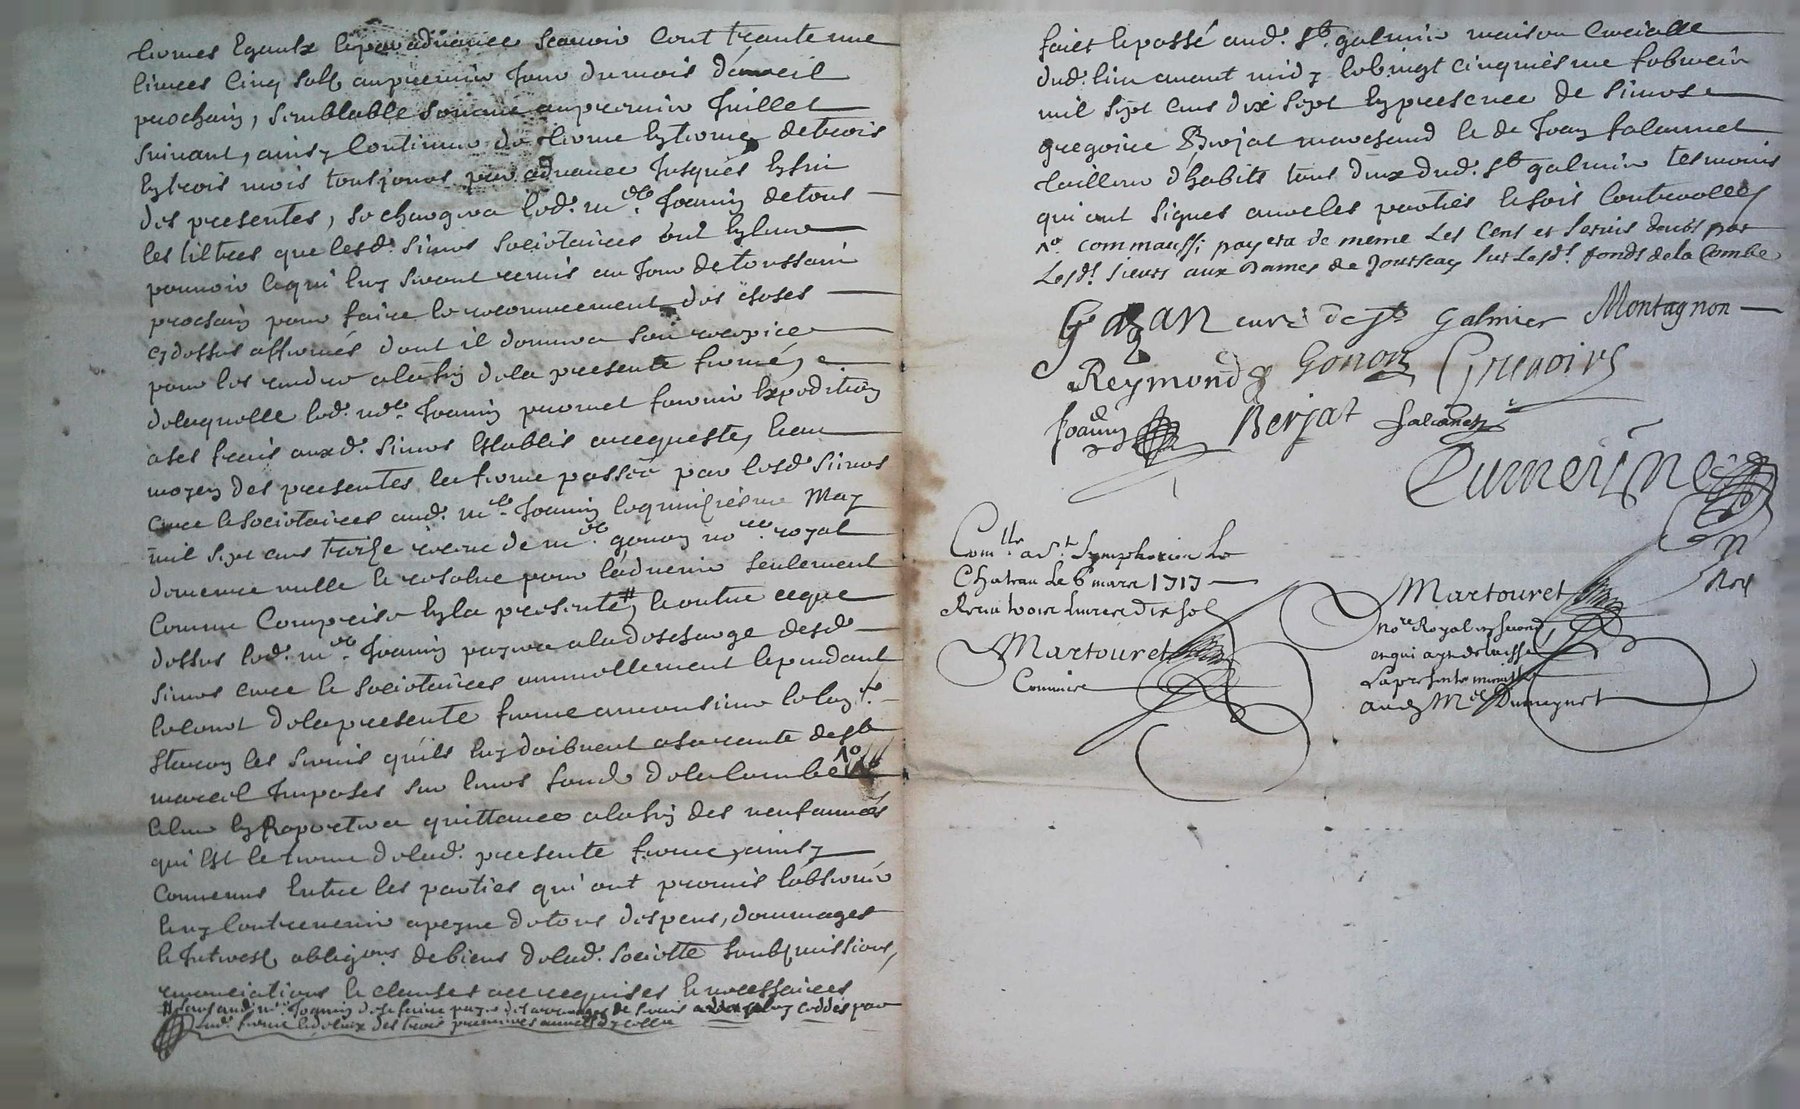 termes egaulx et par advance scavoir cent trante une
livres cinq solz au premier jour du mois d'avril
prochain, semblable somme au premier juillet
suivant, ainsy continuer de terme en terme de trois
en trois mois tousjours par advance jusques en fin
des presentes, se chargera led. me Joanin de tous
les tiltres que lesd. sieurs societaires ont en leur
pouvoir lequi luy seront remis au jour de toussain
prochain pour faire le renouvement des choses
cy dessus affermés dont il donnera son recepice
pour les rendre a la fin de la presente ferme,
de laquelle led. me Joanin promet fournir expedition
a ses frais ausd. sieurs establis a requeste, et au
moyen des presentes la ferme passée par lesd. sieurs
curé et societaires aud. me Joanin le quinziesme may
mil sept cens treize receue de me gonon nore royal
demeure nulle et resolue pour l'advenir seulement
comme comprise en la presente # et outre ce que
dessus led. me Joanin payera a la descharge desd.
sieurs curé et societaires annuellement et pendant
le cours de la presente ferme a monsieur
les servis qu'ils luy doibvent a sa rante de st
marcel imposes sur leurs fonds de la combe No
et leur en raportera quittance a la fin des neuf années
qui est le terme de lad. presente ferme, ainsy
convenus entre les parties qui ont promis l'observer
et n'y contrevenir a peyne de tous despens, dommages
et interestz obligeans de biens de lad. societté soubzmissions,
renonciations et clauses ace requises et necessaires
lad. ferme des trois premieres années d'icelle
faict et passé aud. st galmier maison curialle
dud. lieu avant midy le vingt cinquiesme febvrier
mil sept cens dix sept en presence de sieurs
gregoire Berjat marchand et de Jean falconnet
tailleur d'habits tous deux dud. st galmier tesmoins
qui ont signes avec les parties et sera controllé
No comm aussi payera de meme les cens et servis deubs par
lesd. sieurs aux Dames de Jourscay sur lesd. fonds de la Combe
Gazan curé de st galmier Montagnon
Reymond Gonon Gregoire
Joanin Berjat falconet
Dumeignet
n
Roy
Comlle a St Symphorien le
Chateau le 6 mars 1717
Martouret
Commis
Martouret
nore Royal
et qui a
la presente minutte
aud. Me Dumeignet